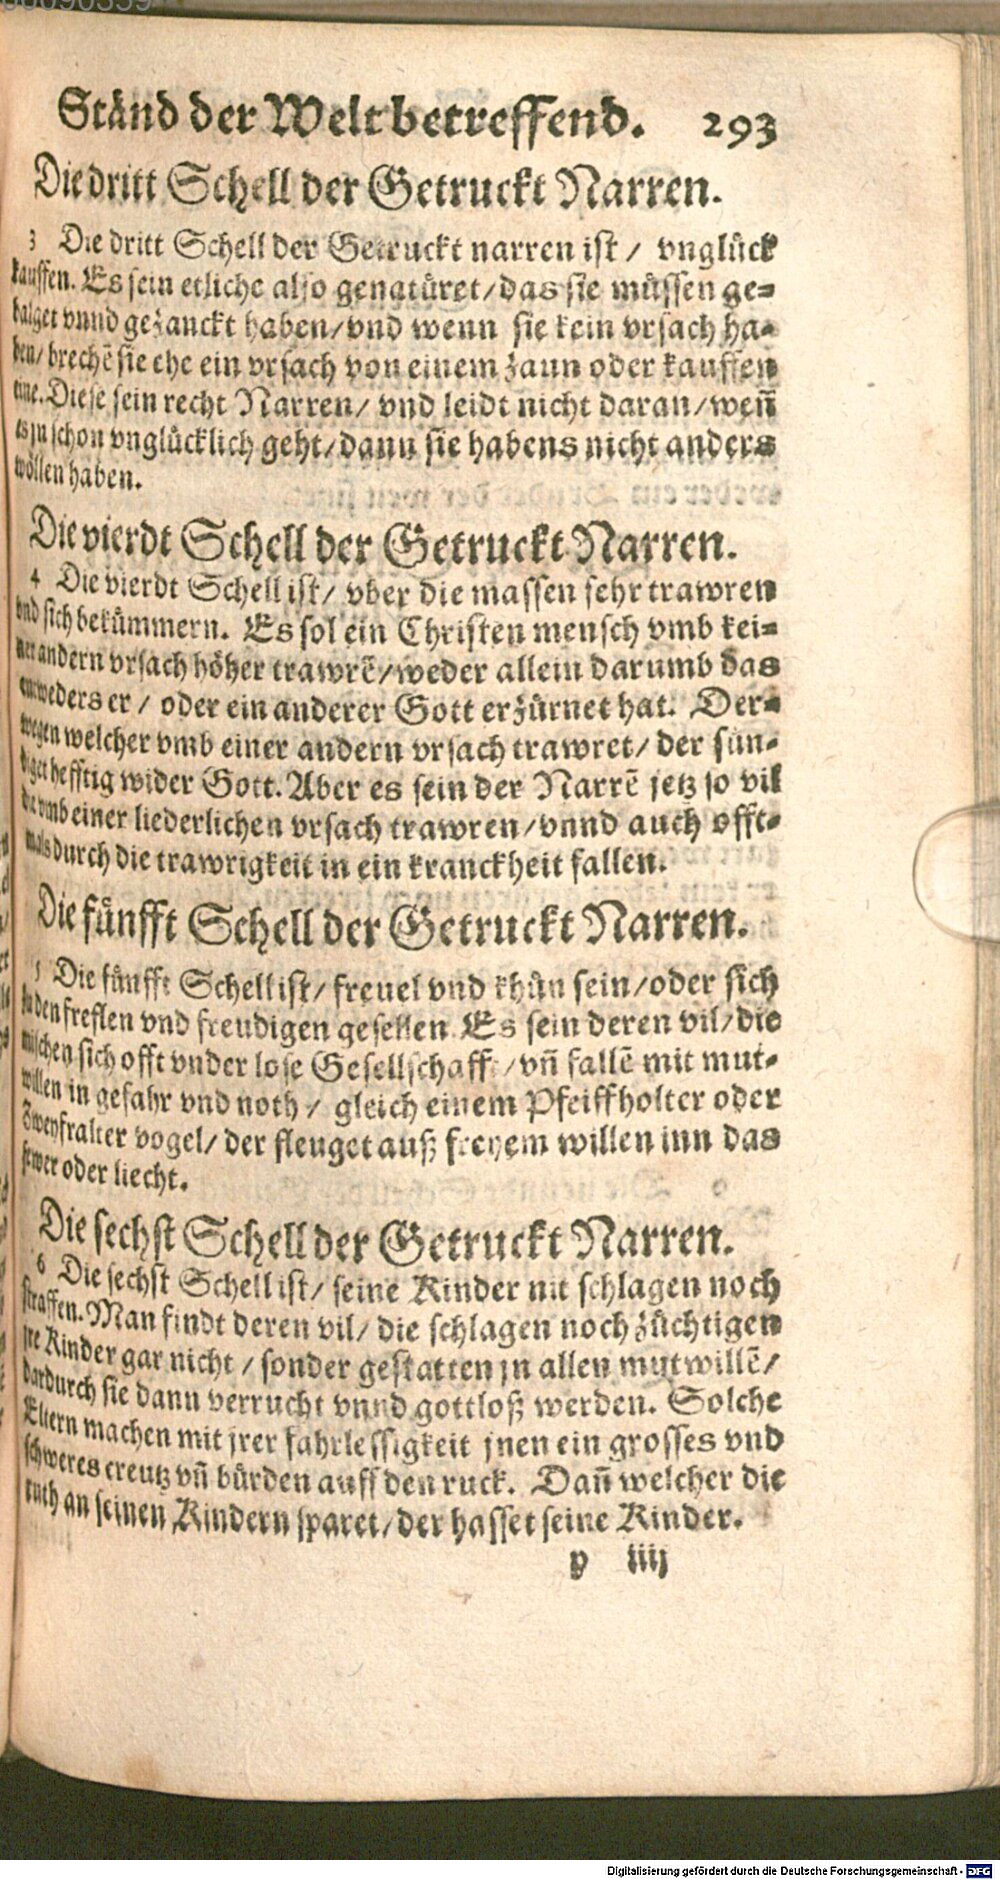 Ständ der Welt betreffend. 293
Die dritt Schell der Getruckt Narren.
3 Die dritt Schell der Getruckt narren ist / vnglück
kauffen. Es sein etliche also genatüret / das sie müssen ge=
balget vnnd gezanckt haben / vnd wenn sie kein vrsach ha=
ben / brechē sie ehe ein vrsach von einem zaun oder kauffen
eine. Diese sein recht Narren / vnd leidt nicht daran / weñ
es jn schon vnglücklich geht / dann sie habens nicht anders
wöllen haben.
Die vierdt Schell der Getruckt Narren.
4 Die vierdt Schell ist / vber die massen sehr trawren
vnd sich bekümmern. Es sol ein Christen mensch vmb kei=
ner andern vrsach höher trawrē / weder allein darumb das
entweders er / oder ein anderer Gott erzürnet hat. Der=
wegen welcher vmb einer andern vrsach trawret / der sün=
diget hefftig wider Gott. Aber es sein der Narrē jetz so vil
die vmb einer liederlichen vrsach trawren / vnnd auch offt=
mals durch die trawrigkeit in ein kranckheit fallen.
Die fünfft Schell der Getruckt Narren.
5 Die fünfft Schell ist / freuel vnd khün sein / oder sich
zu den freflen vnd freudigen gesellen. Es sein deren vil / die
mischen sich offt vnder lose Gesellschafft / vñ fallē mit mut=
willen in gefahr vnd noth / gleich einem Pfeiffholter oder
Zweyfralter vogel / der fleuget auß freyem willen inn das
fewer oder liecht.
Die sechst Schell der Getruckt Narren.
6 Die sechst Schell ist / seine Kinder nit schlagen noch
straffen. Man findt deren vil / die schlagen noch züchtigen
jre Kinder gar nicht / sonder gestatten jn allen mutwillē /
dardurch sie dann verrucht vnnd gottloß werden. Solche
Eltern machen mit jrer fahrlessigkeit jnen ein grosses vnd
schweres creutz vñ bürden auff den ruck. Dañ welcher die
ruth an seinen Kindern sparet / der hasset seine Kinder.
p iiij
Digitalisierung gefördert durch die Deutsche Forschungsgemeinschaft - DFG